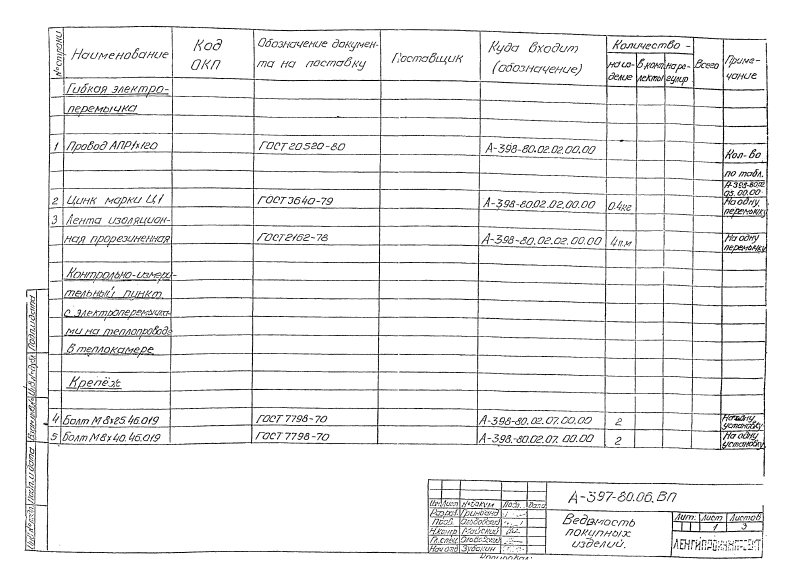 № строки
Наименование
Код ОКП
Обозначение докумен-
та на поставку
Поставщик
Куда входит
(обозначение)
Количество -
на из-
делие
в комп
лекты
на ре-
гулир
Всего
Приме-
чание
Гибкая электро-
перемычка
1 Провод АПР1х120 ГОСТ 20520-80 А-398-80.02.02.00.00
Кол-во
по табл.
2 Цинк марки Ц1 ГОСТ 3640-79 А-398-80.02.02.00.00 0.4кг На одну перемычку
3 Лента изоляцион-
ная прорезиненная ГОСТ 2162-78 А-398-80.02.02.00.00 4п.м На одну перемычку
Контрольно-измери-
тельный пункт
с электроперемычка-
ми на теплопроводе
в теплокамере
Крепёж
4 Болт М8х25.46.019 ГОСТ 7798-70 А-398-80.02.07.00.00 2 На одну установку
5 Болт М8х40.46.019 ГОСТ 7798-70 А-398-80.02.07.00.00 2 На одну установку
Подп. и дата
Подп. и дата
А-397-80.06.ВП
Изм Лист №докум Подп. Дата
Разраб.
Пров.
Н.контр
Гл.спец
Нач.отд
Ведомость
покупных
изделий.
Лит. Лист Листов
1 3
Копировал: